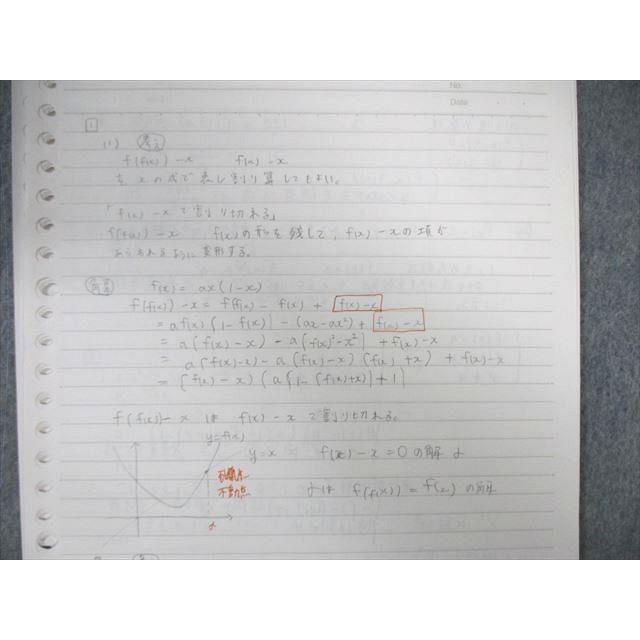 No.
Date
1
(1) 考え
f(f(x)) - x f(x) - x
を x の式で表し割り算してもよい。
「f(x) - x で割り切れる」
f(f(x)) - x f(x) の形を残して、f(x) - x の項が
あらわれるように変形する。
解答 f(x) = ax(1-x)
f(f(x)) - x = f(f(x)) - f(x) + f(x) - x
= af(x)(1 - f(x)) - (ax - ax²) + f(x) - x
= a(f(x) - x) - a{f(x)² - x²} + f(x) - x
= a(f(x) - x) - a(f(x) - x)(f(x) + x) + f(x) - x
= (f(x) - x)(a{1 - (f(x) + x)} + 1)
f(f(x)) - x は f(x) - x で割り切れる。
y = f(x)
y = x f(x) - x = 0 の解 α
不動点
αは f(f(x)) = f(x) の解
α